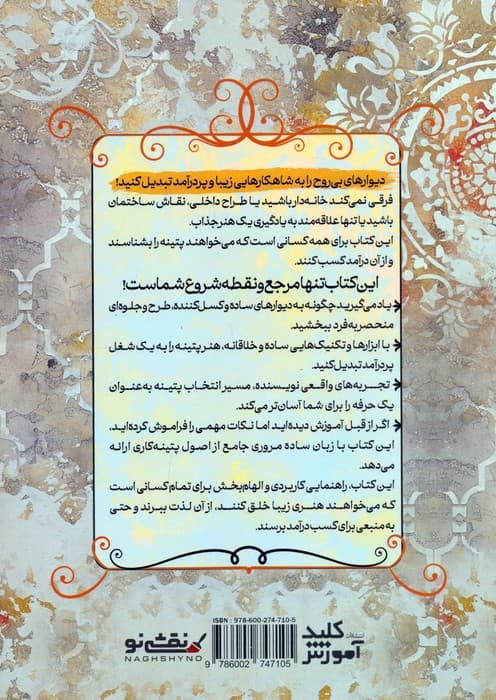 دیوارهای بی‌روح را به شاهکارهایی زیبا و پردرآمد تبدیل کنید!
فرقی نمی‌کند خانه‌دار باشید یا طراح داخلی، نقاش ساختمان
باشید یا تنها علاقه‌مند به یادگیری یک هنر جذاب.
این کتاب برای همه کسانی است که می‌خواهند پتینه را بشناسند
و از آن درآمد کسب کنند.
این کتاب تنها مرجع و نقطه شروع شماست!
یاد می‌گیرید چگونه به دیوارهای ساده و کسل‌کننده، طرح و جلوه‌ای
منحصر به فرد ببخشید.
با ابزارها و تکنیک‌هایی ساده و خلاقانه، هنر پتینه را به یک شغل
پردرآمد تبدیل کنید.
تجربه‌های واقعی نویسنده، مسیر انتخاب پتینه به‌عنوان
یک حرفه را برای شما آسان‌تر می‌کند.
اگر از قبل آموزش دیده‌اید اما نکات مهمی را فراموش کرده‌اید،
این کتاب با زبان ساده مروری جامع از اصول پتینه‌کاری ارائه
می‌دهد.
این کتاب، راهنمایی کاربردی و الهام‌بخش برای تمام کسانی است
که می‌خواهند هنری زیبا خلق کنند، از آن لذت ببرند و حتی
به منبعی برای کسب درآمد برسند.
ISBN : 978-600-274-710-5
9 786002 747105
انتشارات
کلید
آموزش
نقش نو
NAGHSHYNO